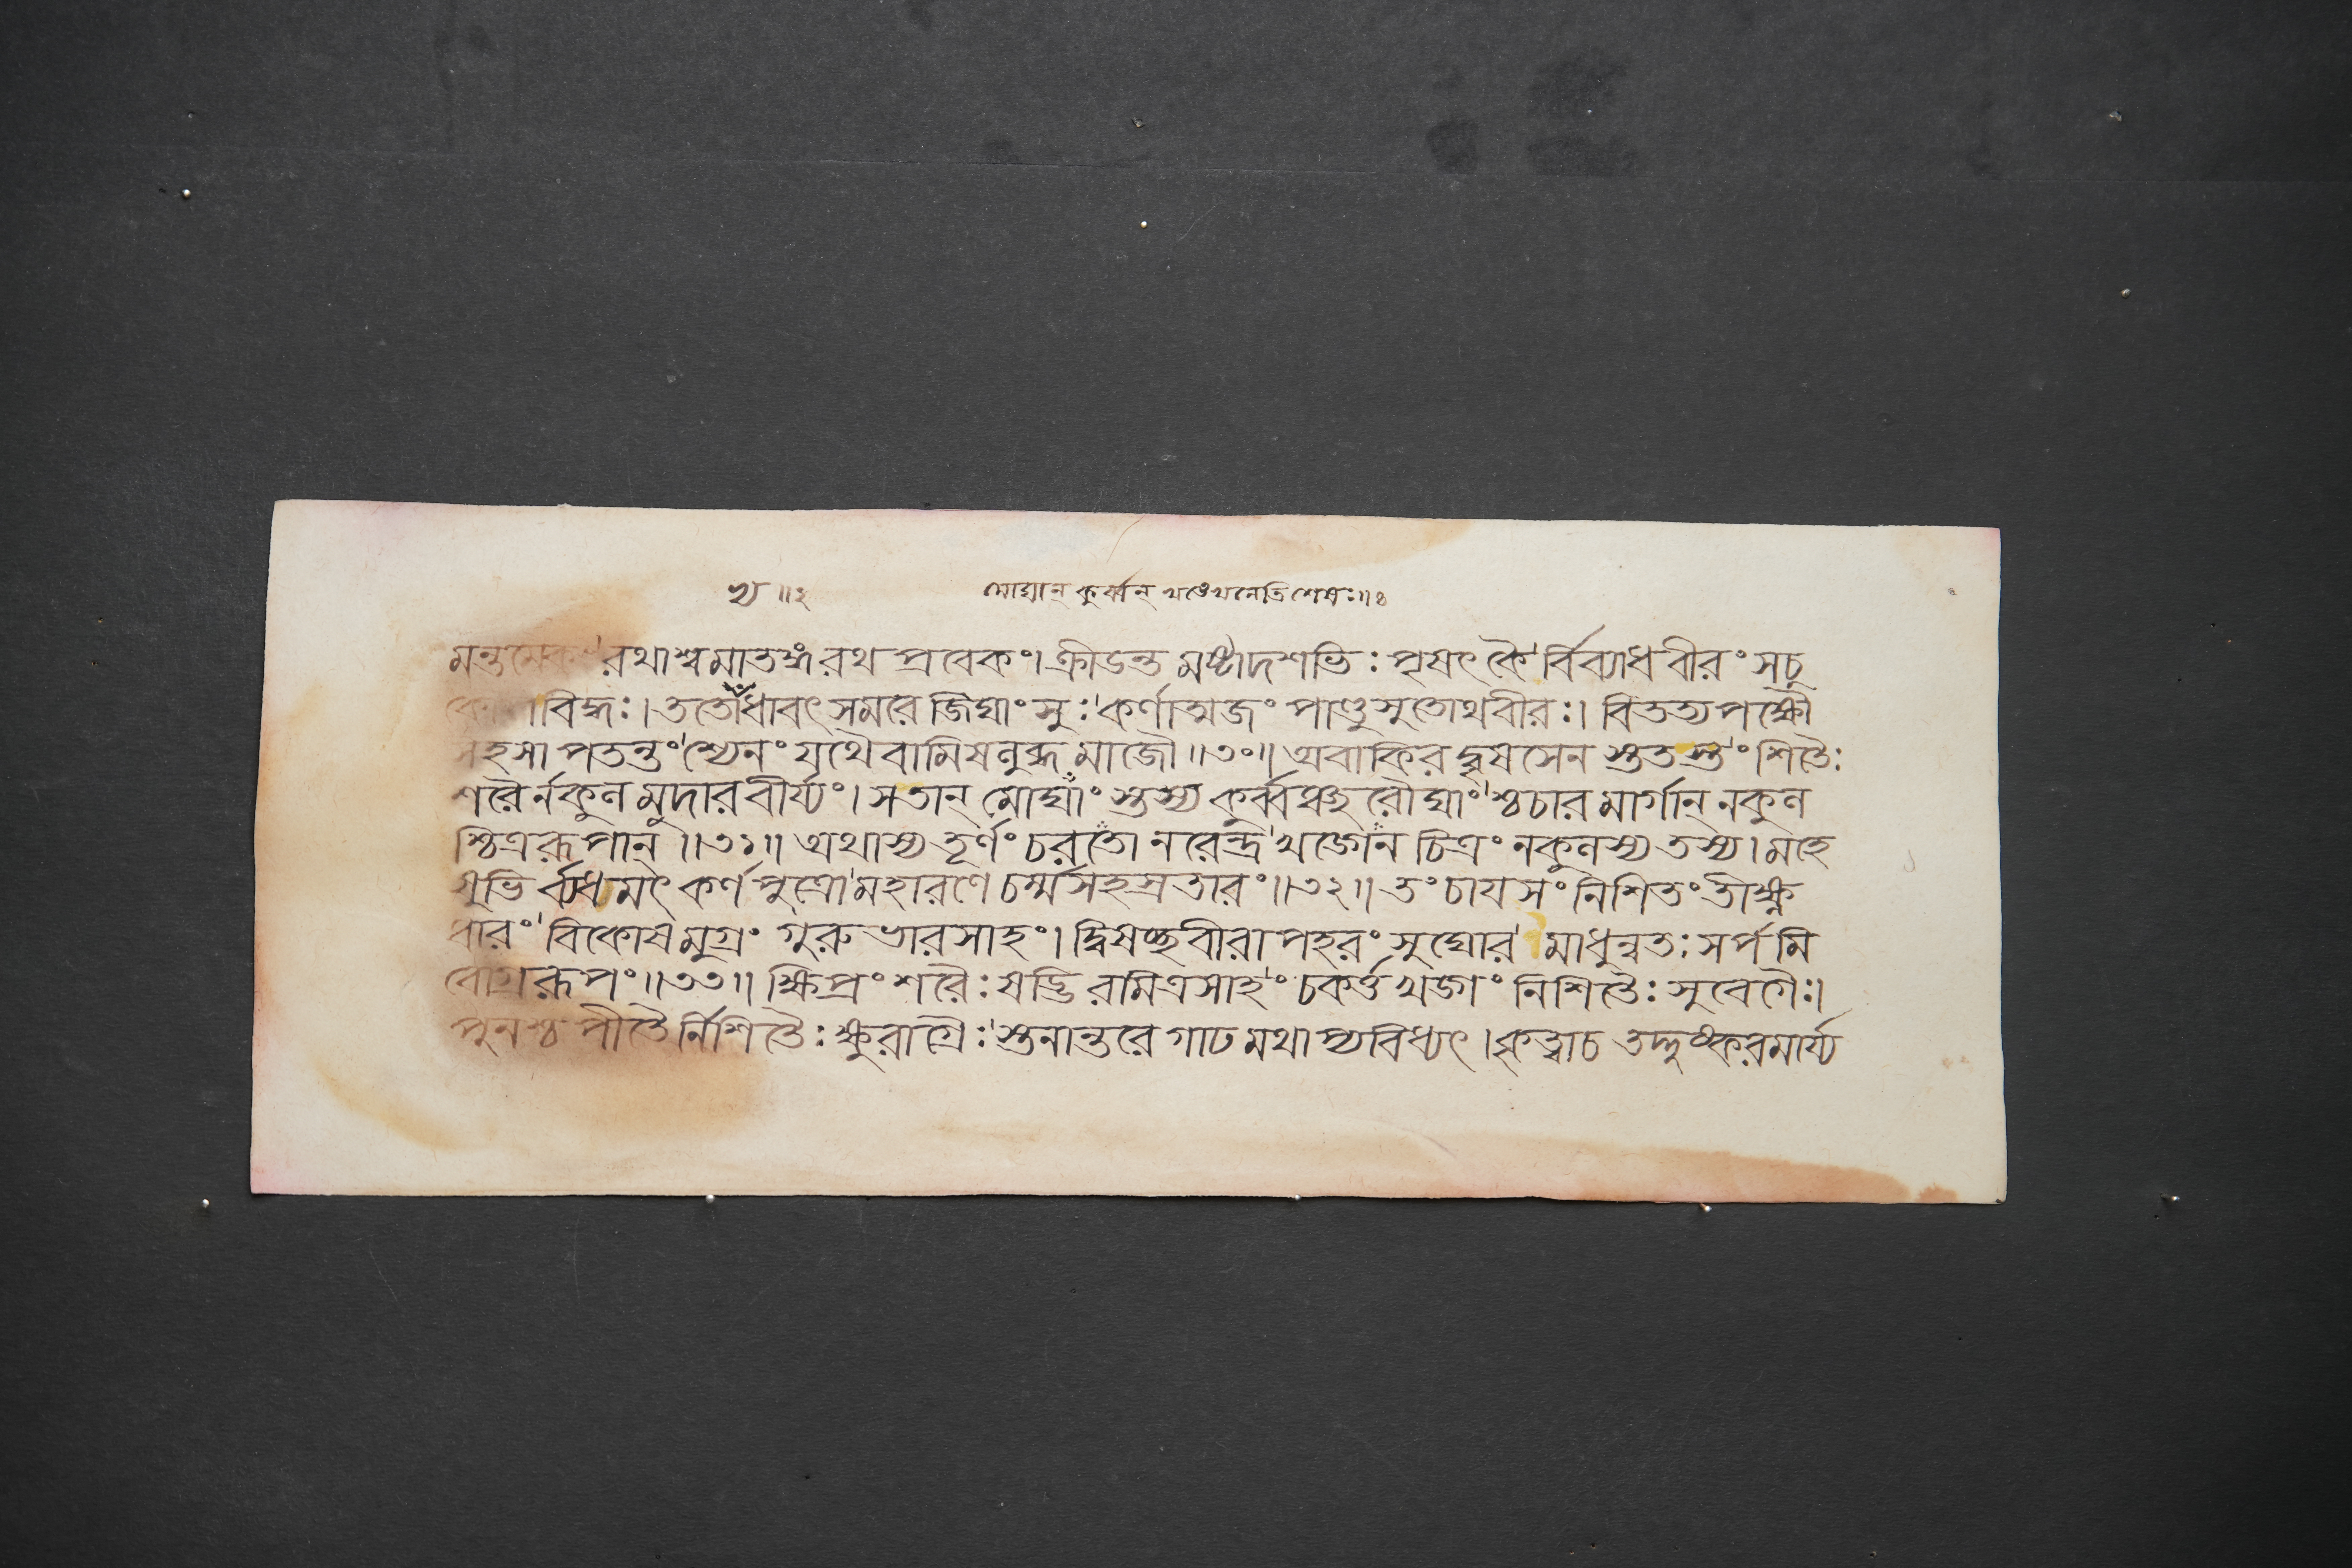 খ্য ॥২ মোঘান্ কুর্ব্বন্ খণ্ডেখনেতি শেষঃ॥৪
মন্তমেকং রথাশ্বমাতঙ্গ রথ প্রবেকং। ক্রীডন্ত মষ্টাদশভিঃ পৃষৎকৈ র্বিব্যাধ বীরং সচু
বিদ্ধঃ। ততোঽধাবৎ সমরে জিঘাংসুঃ কর্ণাত্মজং পাণ্ডুসুতোথবীরঃ। বিতত্য পক্ষৌ
সহসা পতন্তং শ্যেনং যথৈবামিষলুব্ধ মাজৌ॥৩০॥ অবাকির দ্বৃষসেন স্তুতস্তং শিতৈঃ
শরৈর্নকুল মুদারবীর্য্যং। সতান্ মোঘাং স্তস্য কুর্ব্বঞ্ছরৌঘাং শ্চচার মার্গান্ নকুল
শ্চিত্ররূপান্॥৩১॥ অথাস্য তূর্ণং চরতো নরেন্দ্র খড্গেন চিত্রং নকুলস্য তস্য। মহে
ষুভি র্ব্যধমৎ কর্ণপুত্রো মহারণে চর্ম্ম সহস্রতারং॥৩২॥ তং চাযসং নিশিতং তীক্ষ্ণ
ধারং বিকোষমুগ্রং গুরুভারসাহং। দ্বিষচ্ছরীরাপহরং সুঘোর মাধুন্বতঃ সর্পমি
বোগ্ররূপং॥৩৩॥ ক্ষিপ্রং শরৈঃ ষড্ভি রমিত্রসাহং চকর্ত্ত খড্গং নিশিতৈঃ সুবেগৈঃ।
পুনশ্চ পীতৈর্নিশিতৈঃ ক্ষুরাগ্রৈঃ স্তনান্তরে গাঢমথাপ্যবিধ্যৎ। কৃত্বাচ তদ্দুষ্করমার্য্য